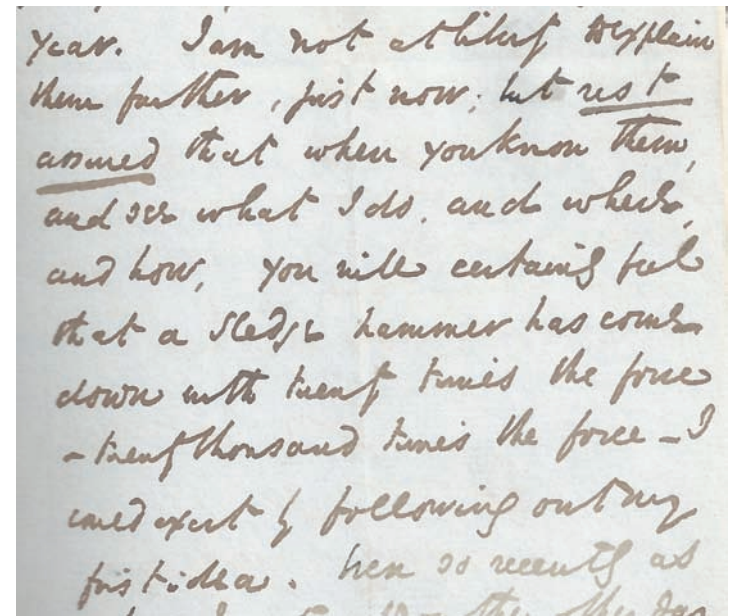 year. I am not at liberty to explain
them further, just now; but rest
assured that when you know them,
and see what I do, and where,
and how, you will certainly feel
that a sledge hammer has come
down with twenty times the force
- twenty thousand times the force - I
could exert by following out my
first idea. Even so recently as